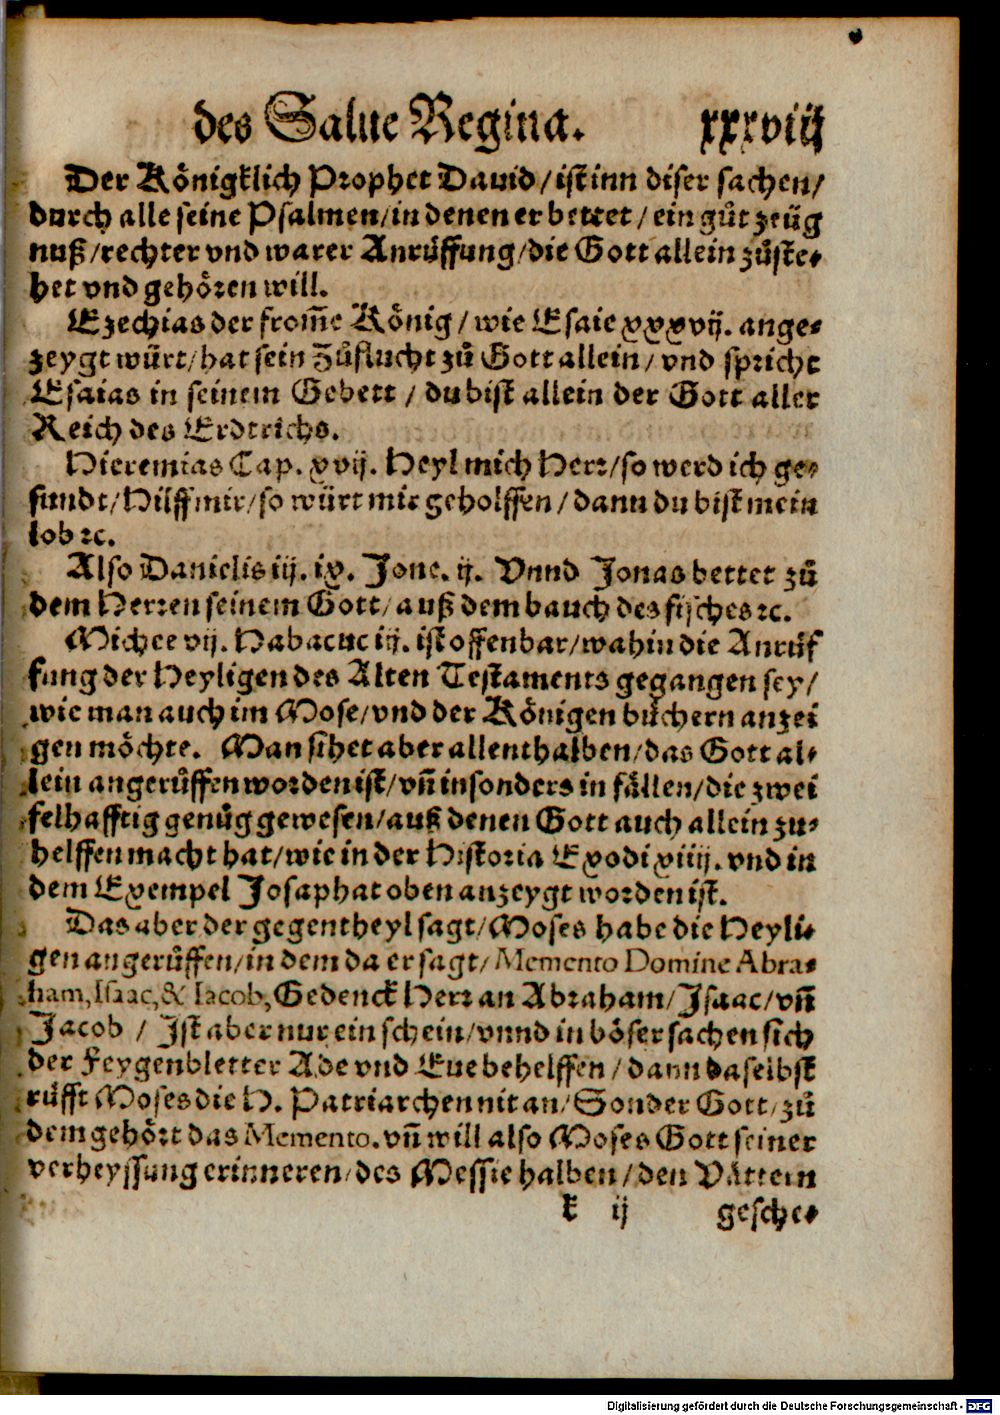 des Salue Regina. xxxviij
Der Königklich Prophet Dauid / ist inn diser sachen /
durch alle seine Psalmen / in denen er bettet / ein gůt zeüg
nuß / rechter vnd warer Anrůffung / die Gott allein zůste⸗
het vnd gehören will.
Ezechias der from̄e König / wie Esaie xxxvij. ange⸗
zeygt würt / hat sein Zůflucht zů Gott allein / vnd spricht
Esaias in seinem Gebett / du bist allein der Gott aller
Reich des Erdtrichs.
Hieremias Cap. xvij. Heyl mich Herr / so werd ich ge⸗
sundt / Hilff mir / so würt mir geholffen / dann du bist mein
lob ꝛc.
Also Danielis iij. ix. Jone. ij. Vnnd Jonas bettet zů
dem Herren seinem Gott / auß dem bauch des fisches ꝛc.
Michee vij. Habacuc iij. ist offenbar / wahin die Anrůf
fung der Heyligen des Alten Testaments gegangen sey /
wie man auch im Mose / vnd der Königen bůchern anzei
gen möchte. Man sihet aber allenthalben / das Gott al⸗
lein angerůffen worden ist / vn̄ insonders in fällen / die zwei
felhafftig genůg gewesen / auß denen Gott auch allein zu⸗
helffen macht hat / wie in der Historia Exodi xiiij. vnd in
dem Exempel Josaphat oben anzeygt worden ist.
Das aber der gegentheyl sagt / Moses habe die Heyli⸗
gen angerůffen / in dem da er sagt / Memento Domine Abra⸗
ham, Isaac, & Iacob, Gedenck Herr an Abraham / Isaac / vn̄
Jacob / Ist aber nur ein schein / vnnd in böser sachen sich
der Feygenbletter Ade vnd Eue behelffen / dann daselbst
růfft Moses die H. Patriarchen nit an / Sonder Gott / zů
dem gehört das Memento. vn̄ will also Moses Gott seiner
verheyssung erinneren / des Messie halben / den Vättern
k ij gesche⸗
Digitalisierung gefördert durch die Deutsche Forschungsgemeinschaft - DFG